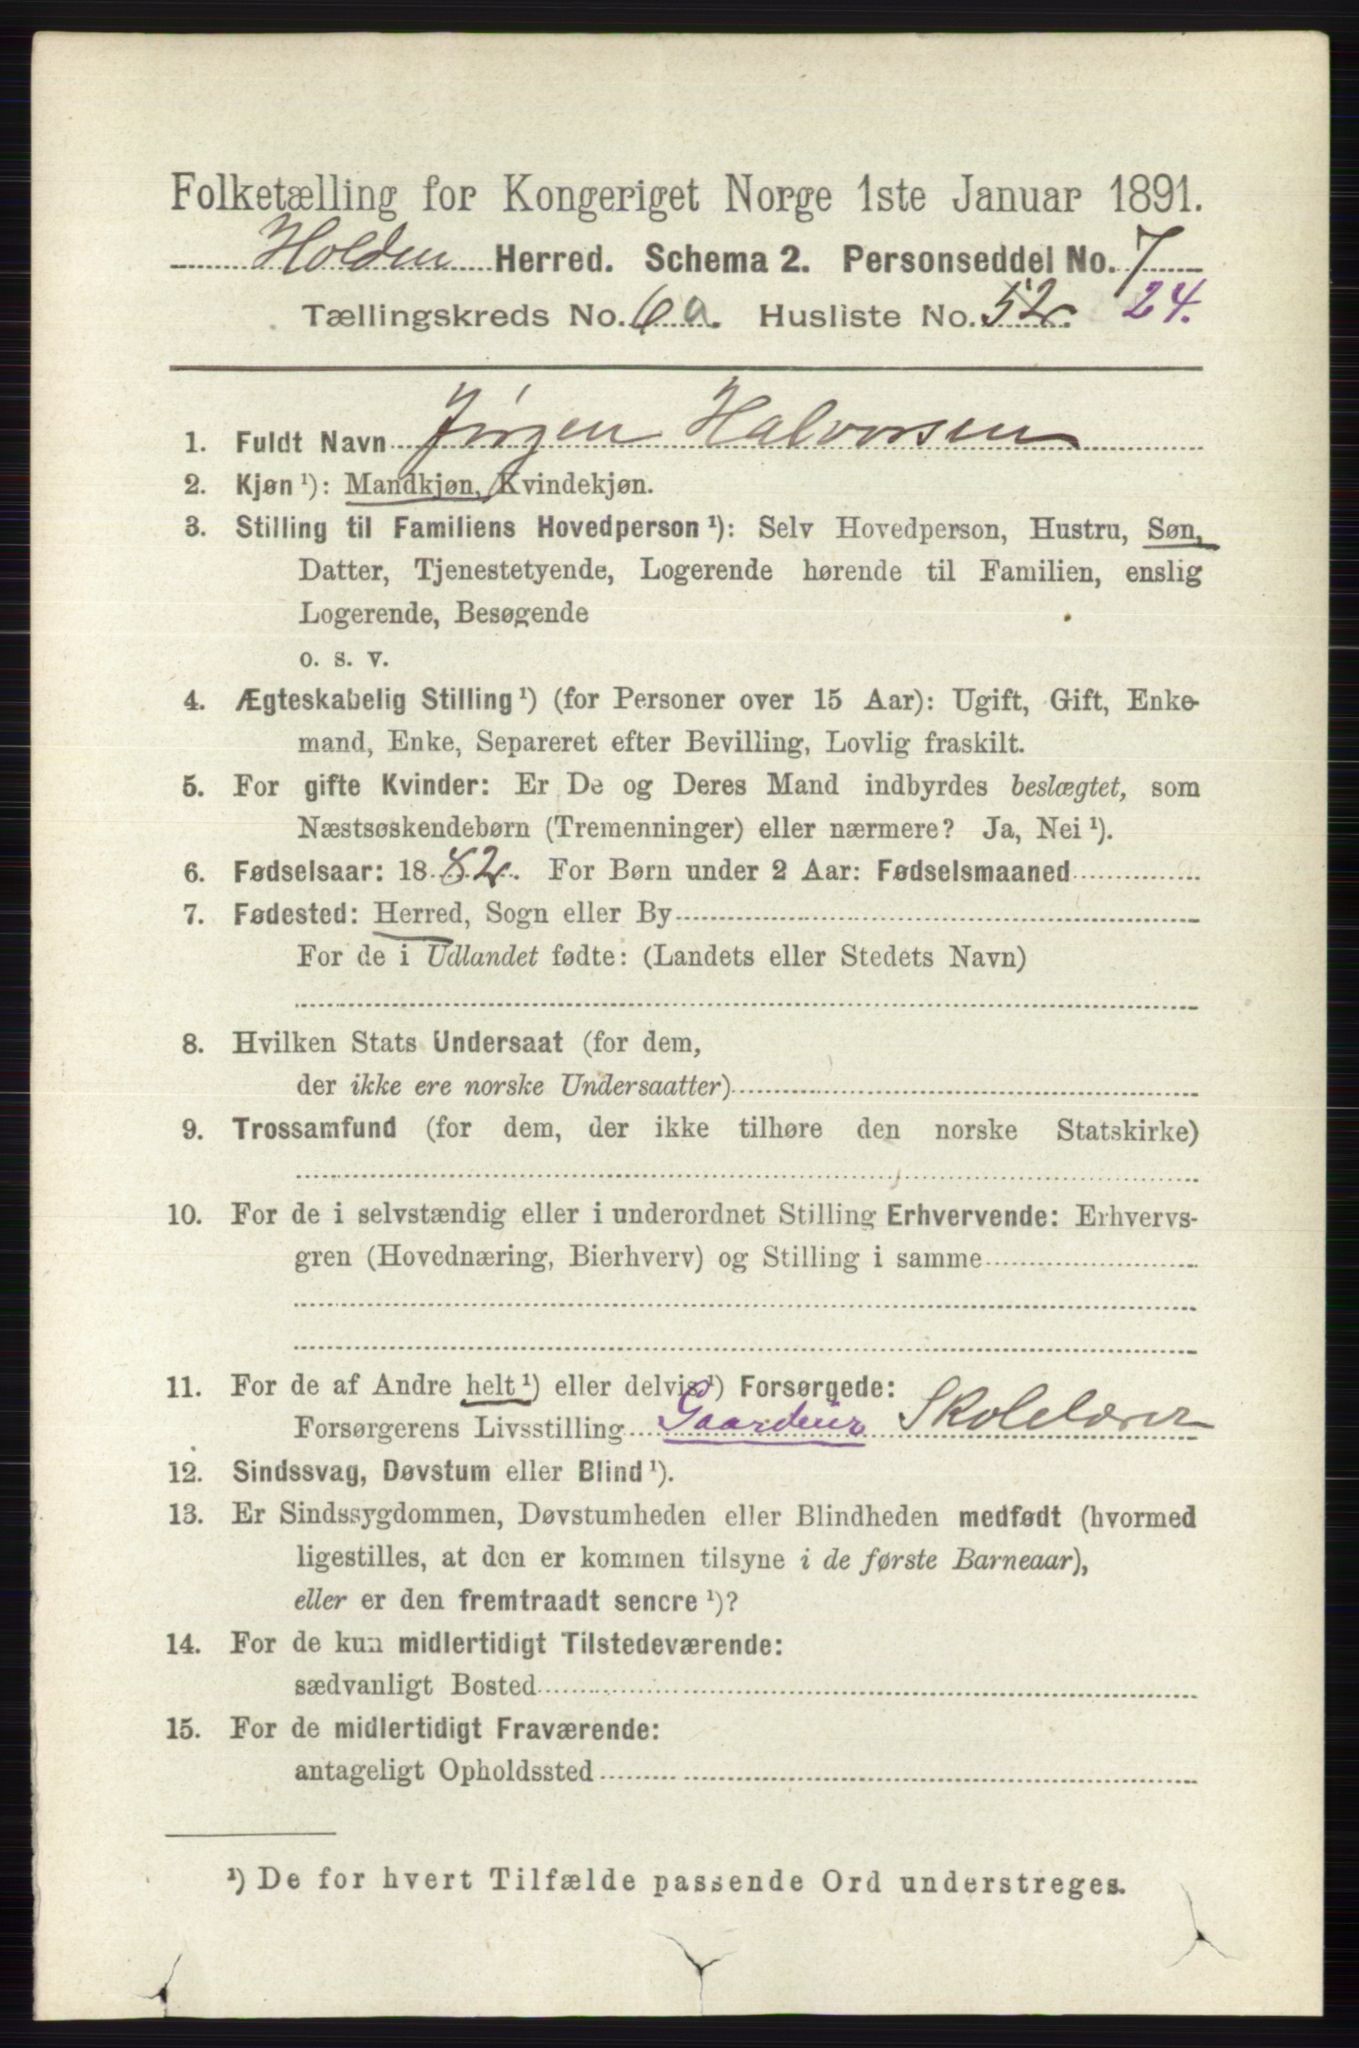 Folketælling for Kongeriget Norge 1ste Januar 1891.
Holden Herred. Schema 2. Personseddel No. 7
Tællingskreds No. 6 a. Husliste No. 52. 24.
1. Fuldt Navn Jørgen Halvorsen
2. Kjøn ¹): Mandkjøn, Kvindekjøn.
3. Stilling til Familiens Hovedperson ¹): Selv Hovedperson, Hustru, Søn,
Datter, Tjenestetyende, Logerende hørende til Familien, enslig
Logerende, Besøgende
o. s. v.
4. Ægteskabelig Stilling ¹) (for Personer over 15 Aar): Ugift, Gift, Enke-
mand, Enke, Separeret efter Bevilling, Lovlig fraskilt.
5. For gifte Kvinder: Er De og Deres Mand indbyrdes beslægtet, som
Næstsøskendebørn (Tremenninger) eller nærmere? Ja, Nei ¹).
6. Fødselsaar: 1882. For Børn under 2 Aar: Fødselsmaaned
7. Fødested: Herred, Sogn eller By
For de i Udlandet fødte: (Landets eller Stedets Navn)
8. Hvilken Stats Undersaat (for dem,
der ikke ere norske Undersaatter)
9. Trossamfund (for dem, der ikke tilhøre den norske Statskirke)
10. For de i selvstændig eller i underordnet Stilling Erhvervende: Erhvervs-
gren (Hovednæring, Bierhverv) og Stilling i samme
11. For de af Andre helt ¹) eller delvis ¹) Forsørgede:
Forsørgerens Livsstilling Gaardeier Skolelærer
12. Sindssvag, Døvstum eller Blind ¹).
13. Er Sindssygdommen, Døvstumheden eller Blindheden medfødt (hvormed
ligestilles, at den er kommen tilsyne i de første Barneaar),
eller er den fremtraadt senere ¹)?
14. For de kun midlertidigt Tilstedeværende:
sædvanligt Bosted
15. For de midlertidigt Fraværende:
antageligt Opholdssted
¹) De for hvert Tilfælde passende Ord understreges.